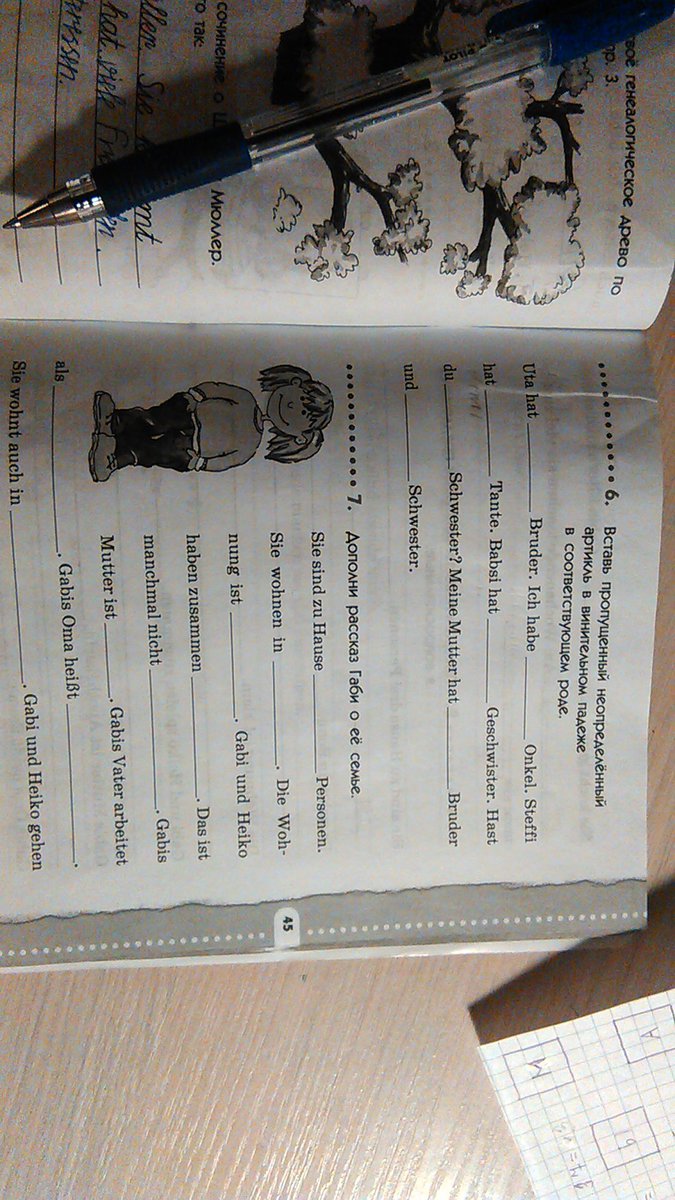 твоё генеалогическое древо по
пр. 3.
сочинение о
Мюллер.
то так:
ellen Sie
hat viele
6. Вставь пропущенный неопределённый
артикль в винительном падеже
в соответствующем роде.
Uta hat ________ Bruder. Ich habe ________ Onkel. Steffi
hat ________ Tante. Babsi hat ________ Geschwister. Hast
du ________ Schwester? Meine Mutter hat ________ Bruder
und ________ Schwester.
7. Дополни рассказ Габи о её семье.
Sie sind zu Hause ________ Personen.
Sie wohnen in ________. Die Woh-
nung ist ________. Gabi und Heiko
haben zusammen ________. Das ist
manchmal nicht ________. Gabis
Mutter ist ________. Gabis Vater arbeitet
als ________. Gabis Oma heißt ________.
Sie wohnt auch in ________. Gabi und Heiko gehen
45
PILOT
А
М
Ы